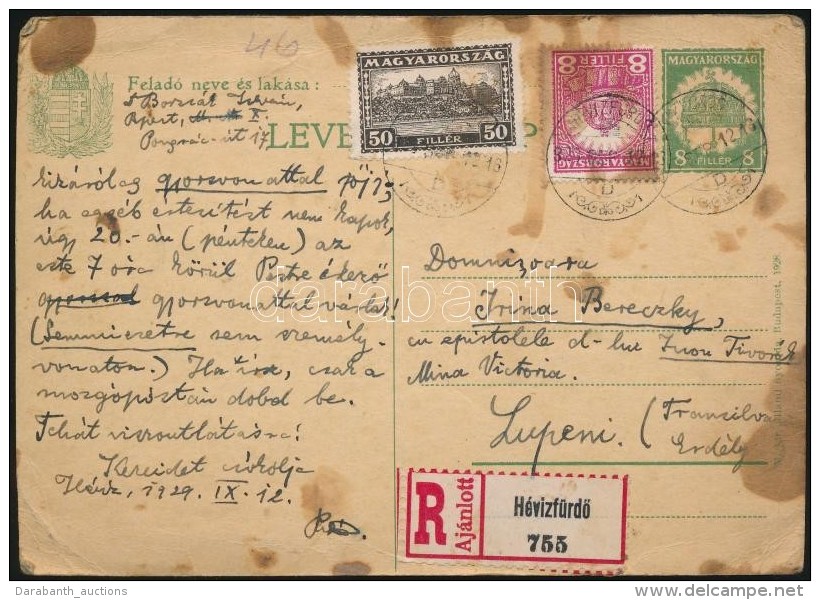 46
Feladó neve és lakása:
Borszál István,
Bpest, X.
Pongrác-út 17
LEVE
MAGYARORSZÁG
50 FILLÉR 50
8 FILLÉR 8
MAGYARORSZÁG
MAGYARORSZÁG
8 FILLÉR 8
12 16
D
kizárólag gyorsvonattal jöjj,
ha egyéb értesítést nem kapok,
úgy 20.-án (pénteken) az
este 7 óra körül Pestre érkező
gyorsvonattal várlak!
(Semmiesetre sem személy-
vonaton.) Ha írsz, csak a
mozgópostán dobd be.
Tehát viszontlátásra!
Kezeidet csókolja
Hévíz, 1929. IX. 12.
Domnizoara
Irina Bereczky,
cu epistolele d-lui
Mina Victoria.
Lupeni. (Transilva
Erdély
Budapest, 1928
R
Ajánlott
Hévizfürdő
755
darabanth
Darabanth_auctions
delcampe.net